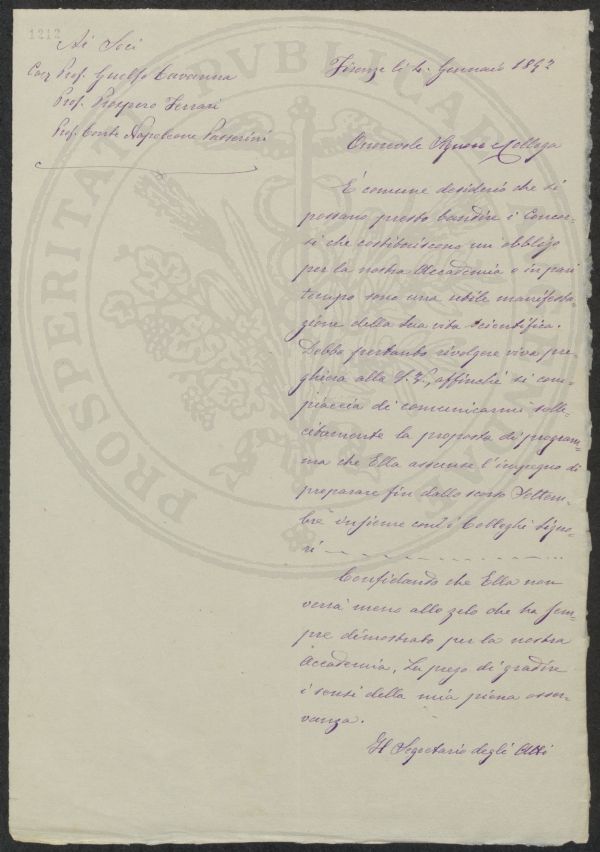 1212
Ai Soci
Cav Prof. Guelfo Cavanna
Prof. Prospero Ferrari
Prof. Conte Napoleone Passerini
Firenze li 4. Gennaio 1892
Onorevole Signore e Collega
È comune desiderio che si
possano presto bandire i Concor-
si che costituiscono un obbligo
per la nostra Accademia e in pari
tempo sono una utile manifesta
zione della sua vita scientifica.
Debbo pertanto rivolgere viva pre-
ghiera alla S. V., affinchè si com-
piaccia di comunicarmi solle-
citamente la proposta di program-
ma che Ella assunse l'impegno di
preparare fin dallo scorso Settem-
bre insieme con i Colleghi Signo-
ri
Confidando che Ella non
verrà meno allo zelo che ha sem-
pre dimostrato per la nostra
Accademia, La prego di gradire
i sensi della mia piena osser-
vanza.
Il Segretario degli Atti
PROSPERITATI PUBLICAE